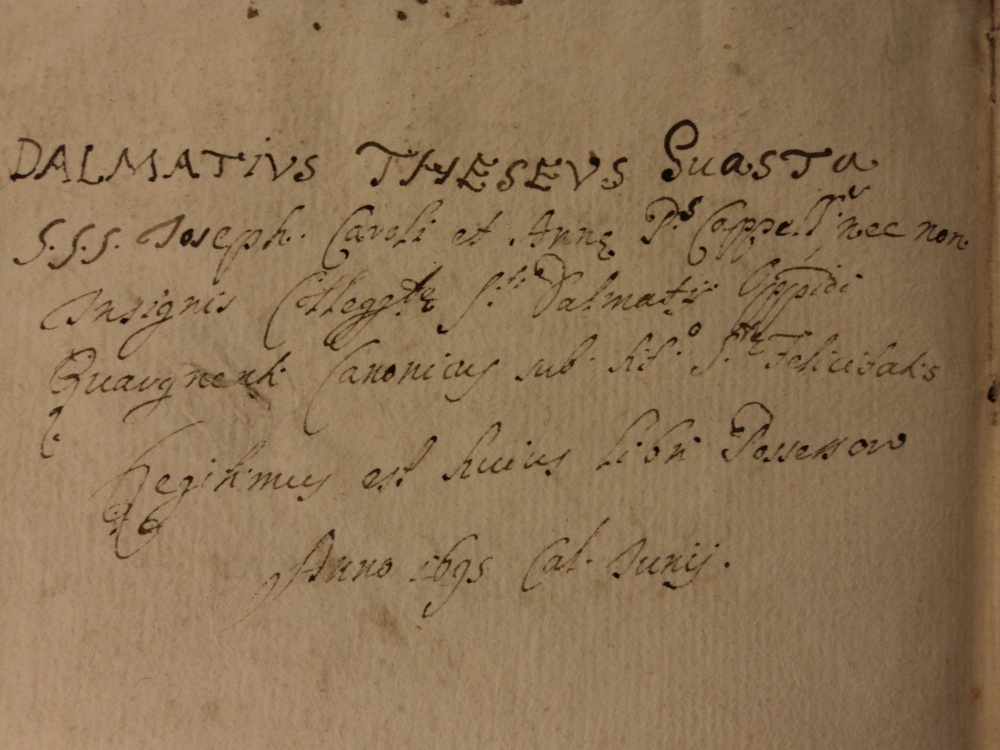 DALMATIVS THESEVS Guasta
S.S.S. Joseph. Caroli et Annę P.s Cappell.s nec non
Insignis Colleg.tę S.ti Dalmatij Oppidi
Quargnenti Canonicus sub tit.o S.tę Felicitatis
Legitimus est huius libri Possessor
Anno 1695 Cal. Junij.